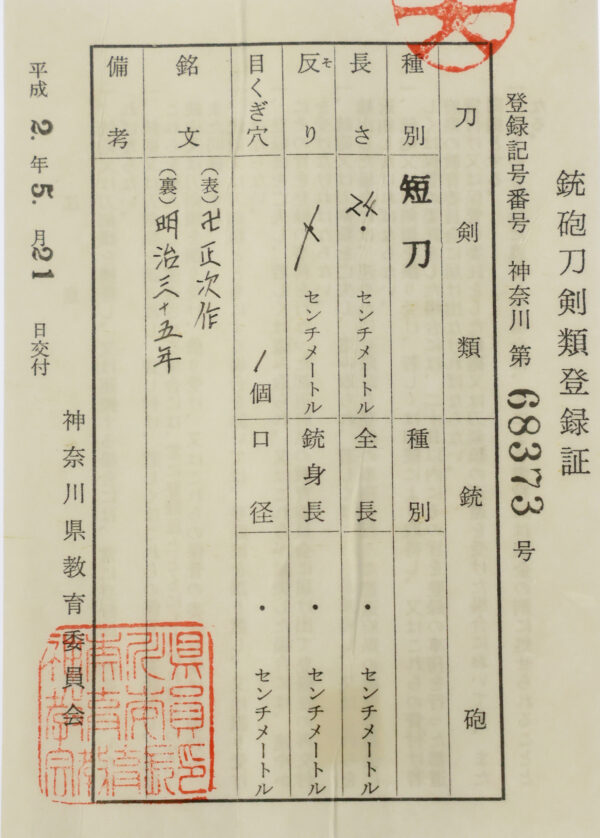 銃砲刀剣類登録証
登録記号番号 神奈川 第 68373 号
刀剣類 銃砲
種別 短刀 種別
長さ 24. センチメートル 全長 ・ センチメートル
反り そ センチメートル 銃身長 ・ センチメートル
目くぎ穴 1 個 口径 ・ センチメートル
銘文 (表) 卍正次作
(裏) 明治三十五年
備考
平成 2. 年 5. 月 21 日交付
神奈川県教育委員会